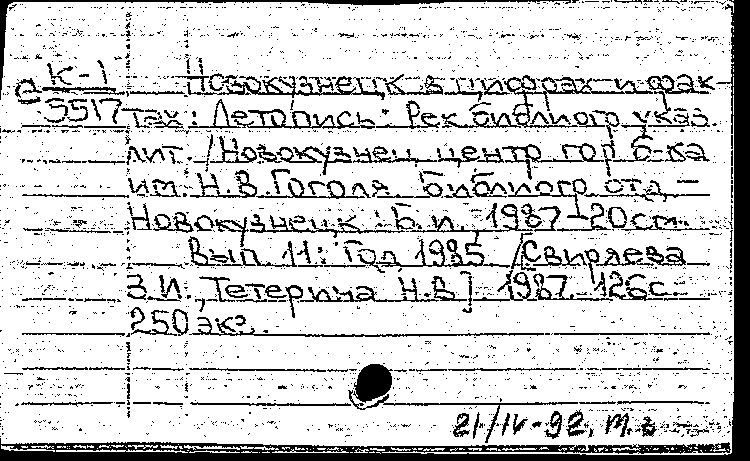 С К-1 Новокузнецк в цифрах и фак
5517 тах: Летопись: Рек. библиогр. указ.
лит. /Новокузнец. центр. гор. б-ка
им. Н.В.Гоголя. Библиогр. отд. —
Новокузнецк: Б.и., 1987-20см.
Вып. 11: Год 1985. /Свиряева
З.И., Тетерина Н.В]. 1987. 126с.
250 экз.
21/IV-92.